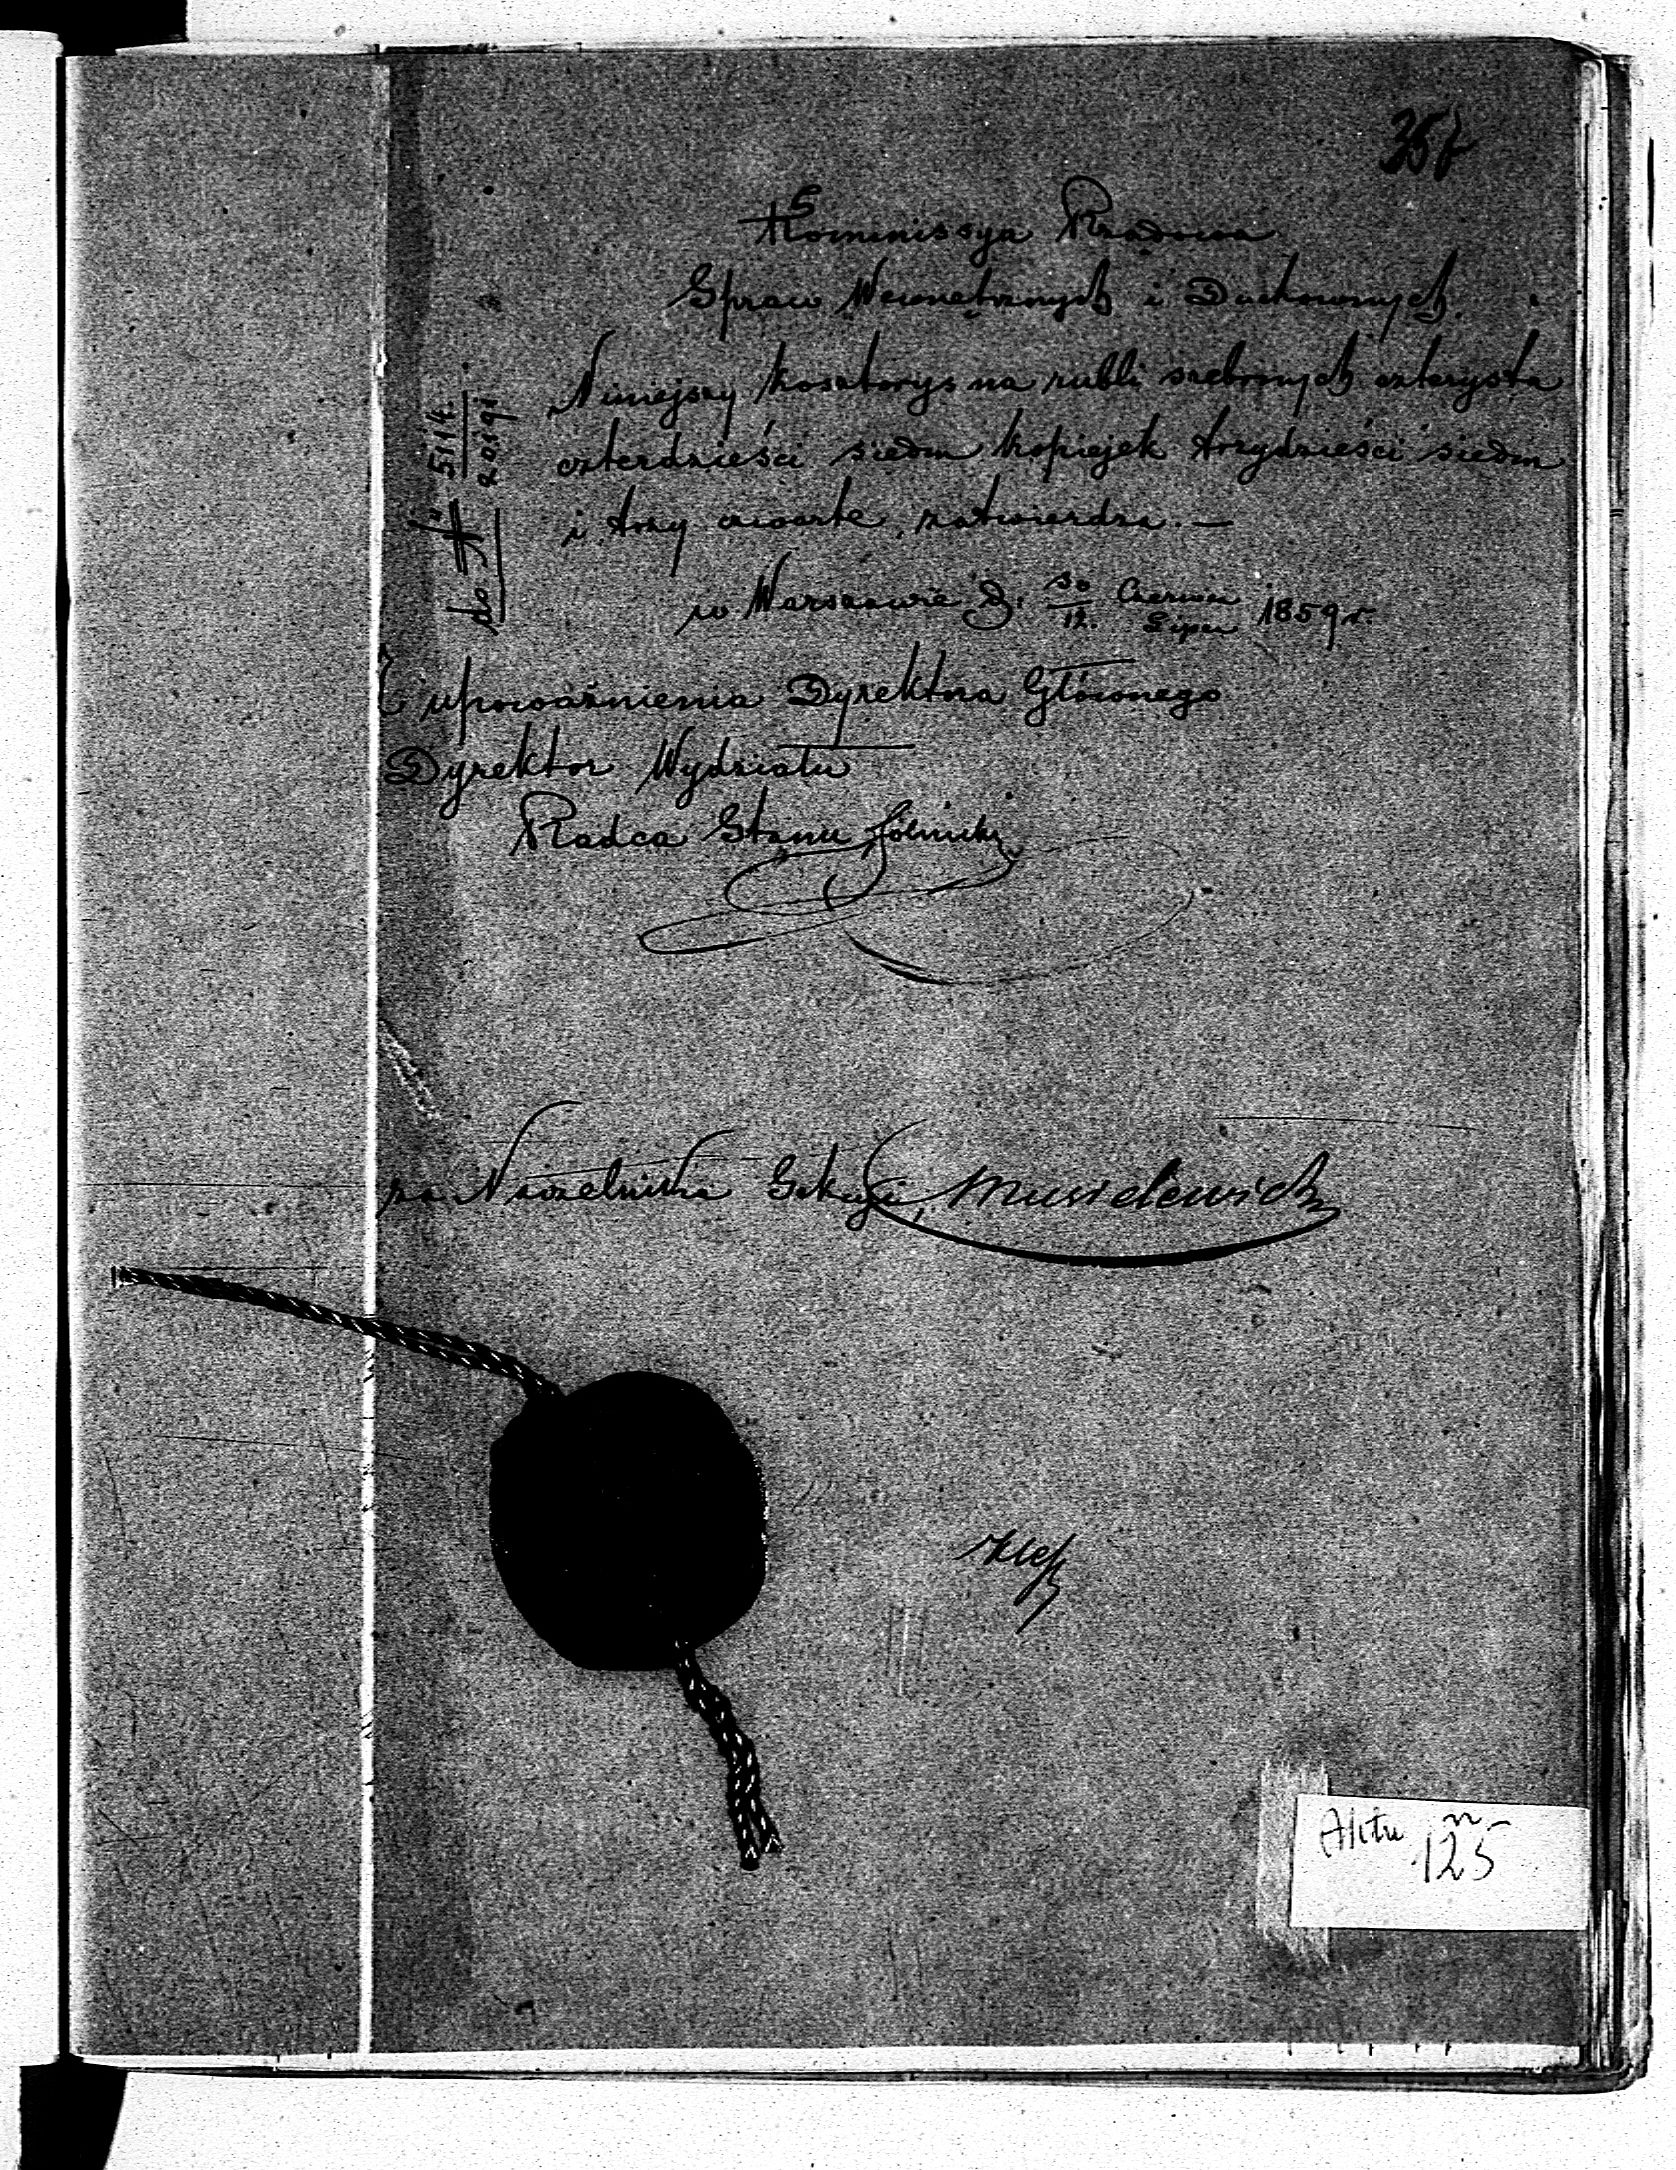 357
Kommissya Rządowa
Spraw Wewnętrznych i Duchownych.
Niniejszy kosztorys na rubli srebrnych czterysta
czterdzieści siedm kopiejek trzydzieści siedm
i trzy czwarte, zatwierdza. —
w Warszawie d. 30/12. Czerwca/Lipca 1859 r.
do N 5114./20591
Z upoważnienia Dyrektora Głównego
Dyrektor Wydziału
Radca Stanu
za Naczelnika Sekcyi, Musielewicz
Aktu n
125